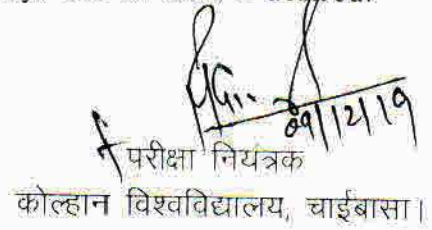 09/12/19
परीक्षा नियंत्रक
कोल्हान विश्वविद्यालय, चाईबासा।